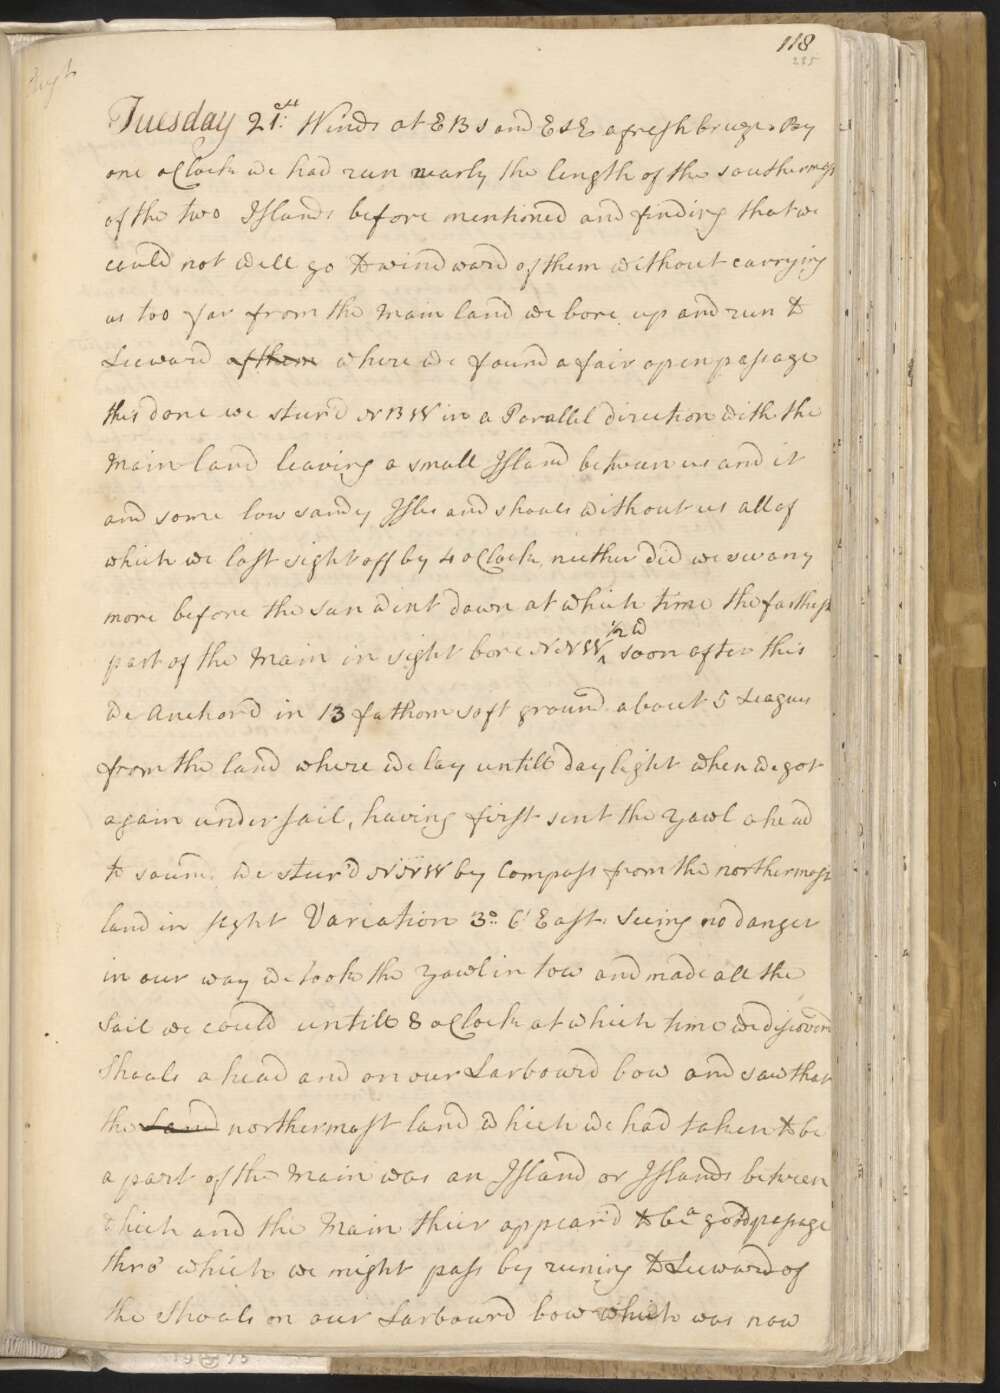 118
285
Augt
Tuesday 21st. Winds at EBS and ESE a fresh breeze. By
one oClock we had run nearly the length of the southermost
of the two Islands before mentioned and finding that we
could not well go to windward of them without carrying
us too far from the Main land we bore up and run to
Leeward of them where we found a fair open passage
this done we steer'd NBW in a Parallel direction with the
Main land leaving a small Island between us and it
and some low sandy Isles and shoals without us all of
which we lost sight off by 4 oClock, neither did we see any
more before the sun went down at which time the farthest
part of the Main in sight bore NNW 1/2 W soon after this
we Anchord in 13 fathom soft ground about 5 Leagues
from the land where we lay untill day light when we got
again under sail, having first sent the Yawl ahead
to sound. We steer'd NNW by Compass from the northermost
land in sight Variation 3° 6' East. Seeing no danger
in our way we took the Yawl in tow and made all the
Sail we could untill 8 oClock at which time we discovered
Shoals ahead and on our Larboard bow and saw that
the Land northermost land which we had taken to be
a part of the Main was an Island or Islands between
which and the Main their appear'd to be a good passage
thro' which we might pass by runing to Leeward of
the Shoals on our Larboard bow which was now